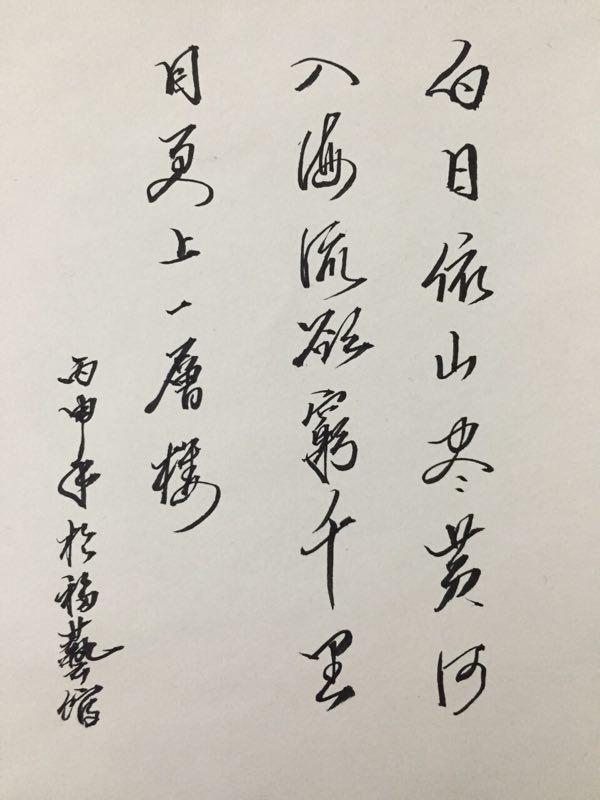 白日依山尽黄河
入海流欲窮千里
目更上一層楼
丙申年於福藝馆